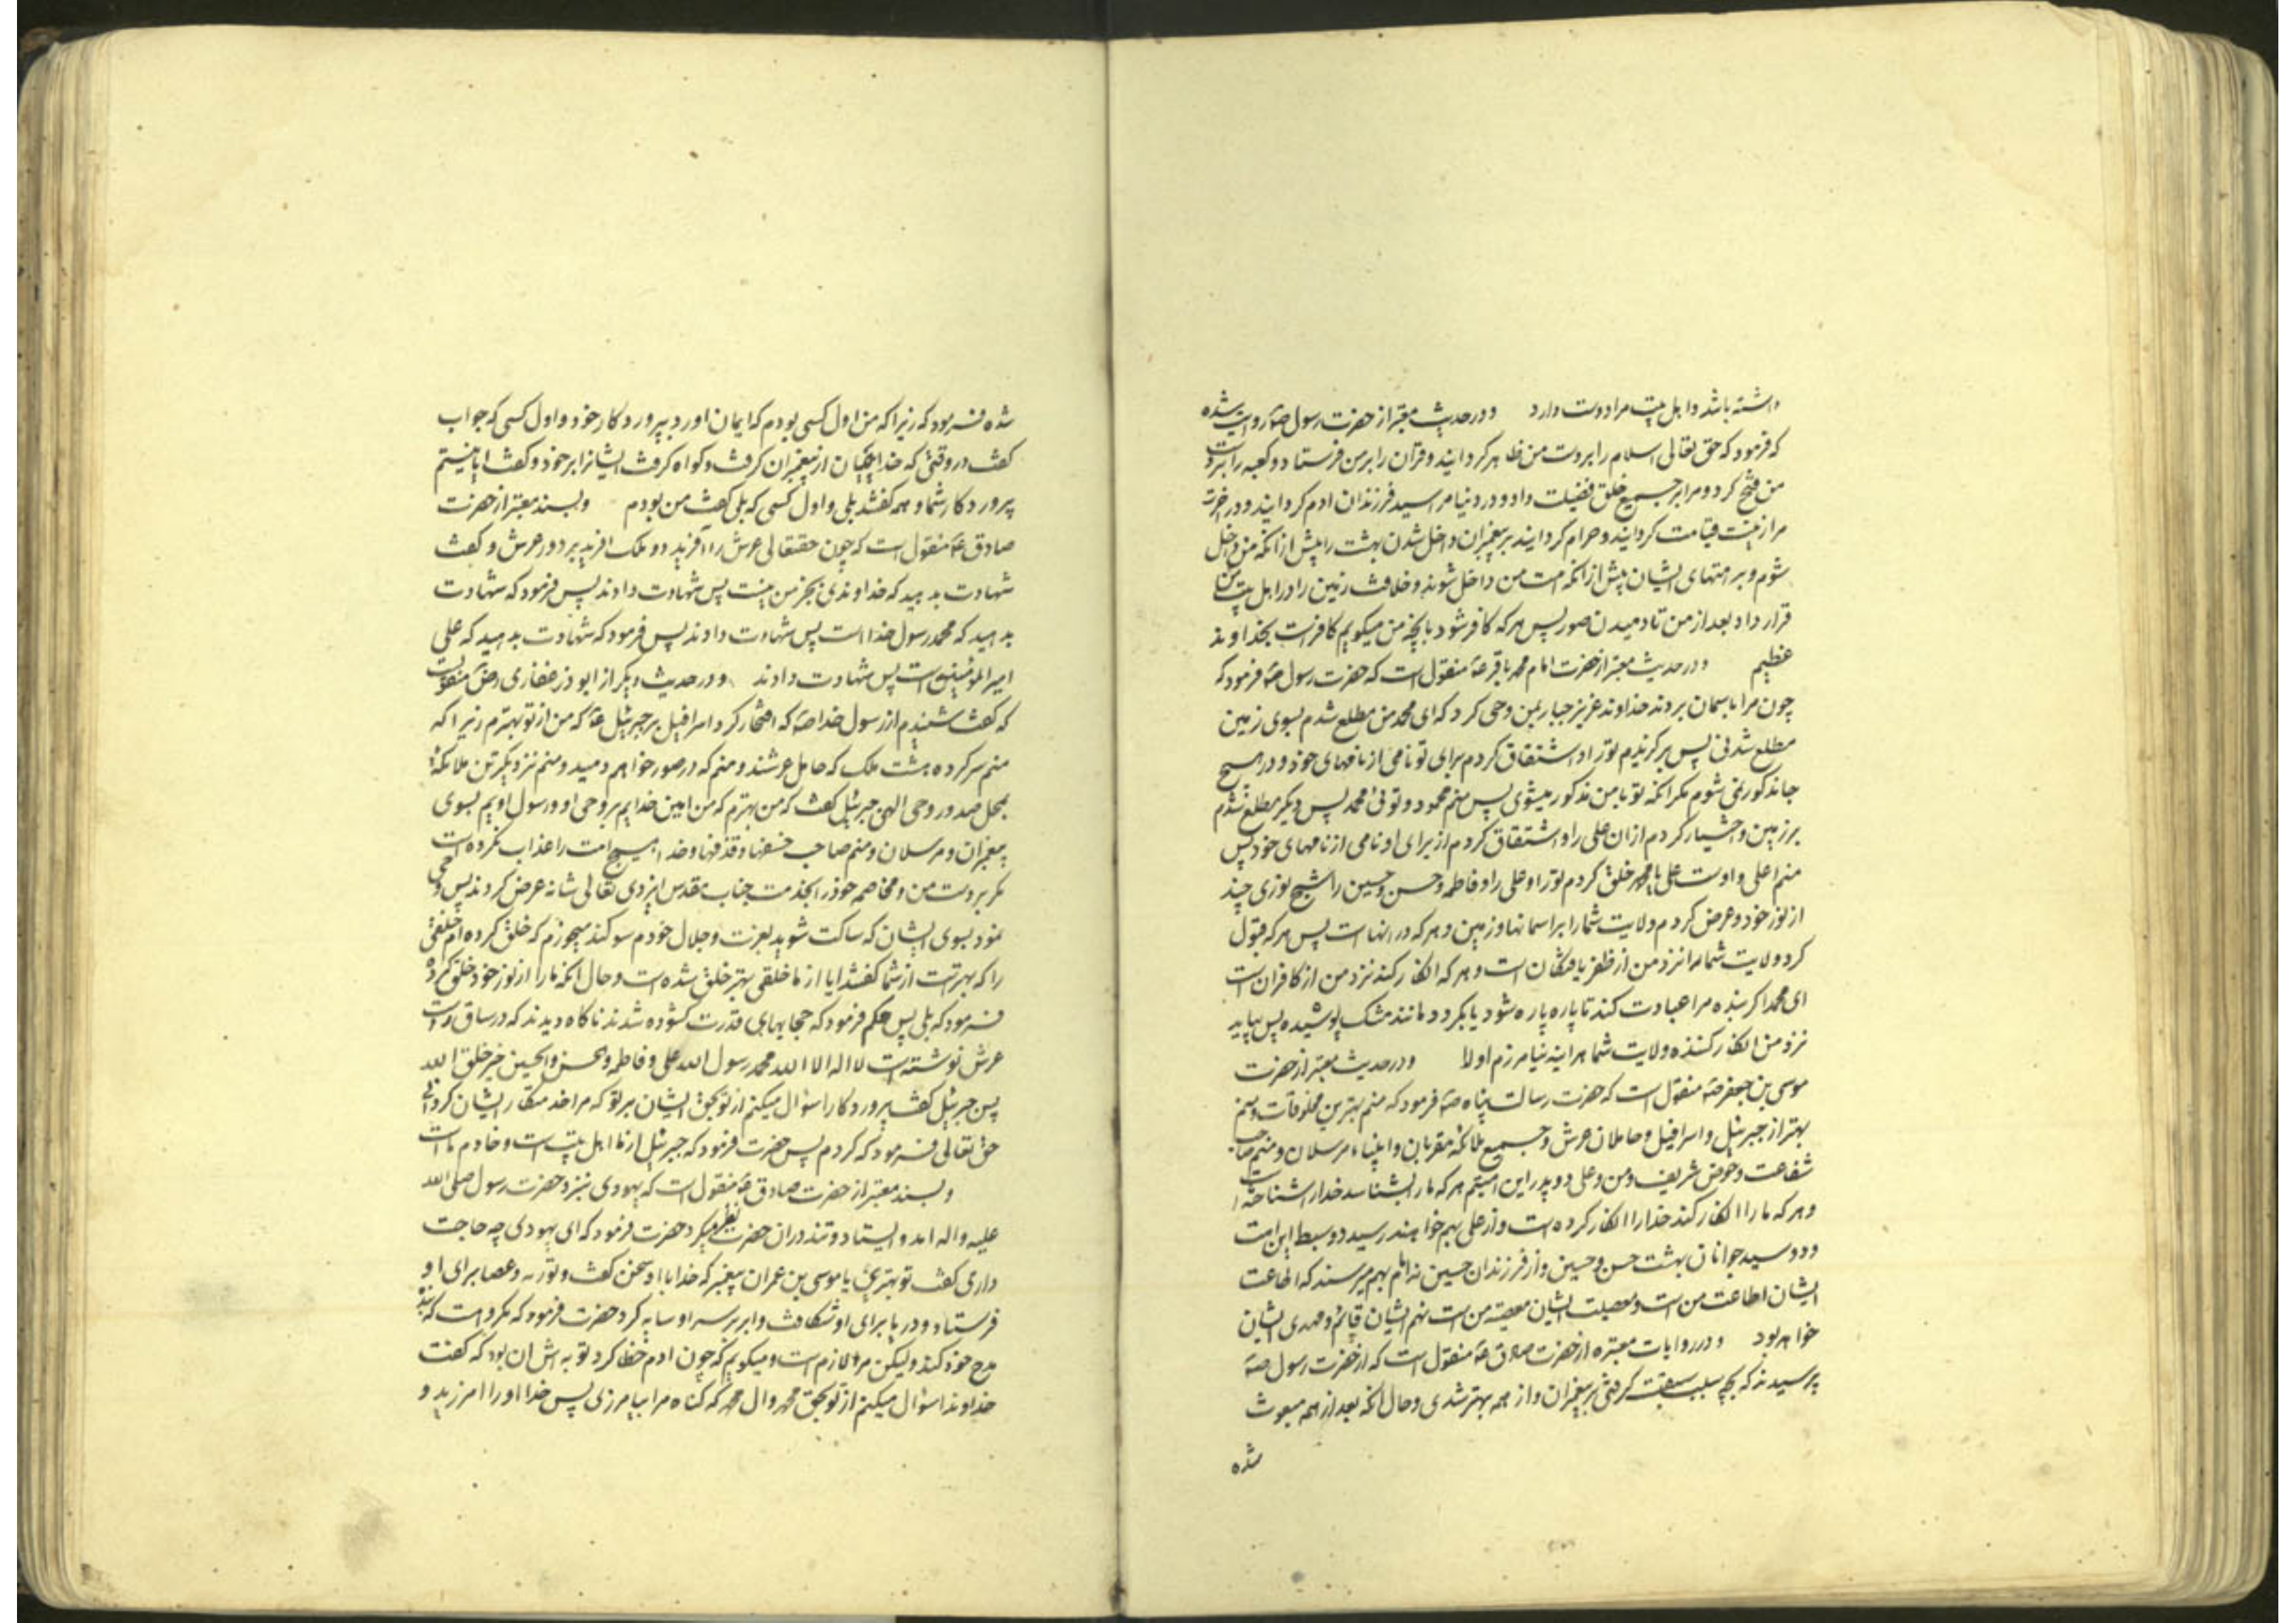 داشته باشد و اهل بیت مرا دوست دارد و در حدیث معتبر از حضرت رسول صه روایت شده
که فرمود که حق تعالی اسلام را بر دست من ظاهر کردایند و قرآن را بر من فرستاد و کعبه را بر دست
من فتح کرد و مرا بر جمیع خلق فضیلت داد و در دنیا مرا سید فرزندان ادم کردایند و در اخرت
مرا زینت قیامت کردایند و حرام کردایند بر پیغمبران داخل شدن بهشت را پیش از انکه من داخل
شوم و بر امتهای ایشان پیش از انکه امت من داخل شوند و خلافت زمین را در اهل بیت من
قرار داد بعد از من تا دمیدن صور پس هر که کافر شود بانچه من میکویم کافر است بخداوند
عظیم و در حدیث معتبر از حضرت امام محمد باقر عه منقول است که حضرت رسول صه فرمود که
چون مرا باسمان بردند خداوند عزیز جبار بمن وحی کرد که ای محمد من مطلع شدم بسوی زمین
مطلع شدنی پس برکزیدم تو را و اشتقاق کردم برای تو نامی از نامهای خود و در هیچ
جا مذکور نمی شوم مکر انکه تو با من مذکور میشوی پس منم محمود و توئی محمد پس دیکر مطلع شدم
بر زمین و اختیار کردم از ان علی را و اشتقاق کردم از برای او نامی از نامهای خود پس
منم اعلی و اوست علی یا محمد خلق کردم تو را و علی را و فاطمه و حسن و حسین را شبح نوری چند
از نور خود و عرض کردم ولایت شما را بر اسمانها و زمین و هر که در انها است پس هر که قبول
کرد ولایت شما را نزد من از ظفر یافتکان است و هر که انکار کند نزد من از کافران است
ای محمد اکر بنده مرا عبادت کند تا پاره پاره شود یا بکردد مانند مشک پوشیده پس بیاید
نزد من انکار کننده ولایت شما هر اینه نیامرزم او را و در حدیث معتبر از حضرت
موسی بن جعفر صه منقول است که حضرت رسالت پناه صه فرمود که منم بهترین مخلوقات و منم
بهتر از جبرئیل و اسرافیل و حاملان عرش و جمیع ملائکه مقربان و انبیاء مرسلان و منم صاحب
شفاعت و حوض شریف و من و علی دو پدر این امتیم هر که ما را بشناسد خدا را شناخته است
و هر که ما را انکار کند خدا را انکار کرده است و از علی بهم خواهند رسید دو سبط این امت
و دو سید جوانان بهشت حسن و حسین و از فرزندان حسین نه امام بهم میرسند که اطاعت
ایشان اطاعت من است و معصیت ایشان معصیت من است نهم ایشان قائم و مهدی ایشان
خواهد بود و در روایات معتبره از حضرت صادق عه منقول است که از حضرت رسول صه
پرسیدند که بچه سبب سبقت کرفتی بر پیغمبران و از همه بهتر شدی و حال انکه بعد از همه مبعوث
شده
شده فرمود که زیرا که من اول کسی بودم که ایمان اورد بپروردکار خود و اول کسی که جواب
کفت در وقتی که خدا پیمان از پیغمبران کرفت و کواه کرفت ایشانرا بر خود و کفت ایا نیستم
پروردکار شما و همه کفتند بلی و اول کسی که بلی کفت من بودم و بسند معتبر از حضرت
صادق عه منقول است که چون حقتعالی عرش را آفرید دو ملک افرید بر دور عرش و کفت
شهادت بدهید که خداوندی بجز من نیست پس شهادت دادند پس فرمود که شهادت
بدهید که محمد رسول خدا است پس شهادت دادند پس فرمود که شهادت بدهید که علی
امیر المؤمنین است پس شهادت دادند و در حدیث دیکر از ابوذر غفاری رض منقول است
که کفت شنیدم از رسول خدا صه که افتخار کرد اسرافیل بر جبرئیل عه که من از تو بهترم زیرا که
منم سرکرده هشت ملک که حامل عرشند و منم که در صور خواهم دمید و منم نزدیکترین ملائکه
بمحل صدور وحی الهی جبرئیل کفت که من بهترم که من امین خدایم بر وحی او و رسول اویم بسوی
پیغمبران و مرسلان و منم صاحب خسفها و قذفها و خدا هیچ امت را عذاب نکرده است
مکر بر دست من و مخاصمه خود را بخدمت جناب مقدس ایزدی تعالی شانه عرض کردند پس وحی
نمود بسوی ایشان که ساکت شوید بعزت و جلال خودم سوکند میخورم که خلق کرده ام خلقی
را که بهتر است از شما کفتند ایا از ما خلقی بهتر خلق شده است و حال انکه ما را از نور خود خلق کرده
فرمود که بلی پس حکم فرمود که حجابهای قدرت کشوده شدند ناکاه دیدند که در ساق راست
عرش نوشته است لا اله الا الله محمد رسول الله علی و فاطمه و الحسن و الحسین خیر خلق الله
پس جبرئیل کفت پروردکارا سؤال میکنم از تو بحق ایشان بر تو که مرا خدمتکار ایشان کردانی
حق تعالی فرمود که کردم پس حضرت فرمود که جبرئیل از ما اهل بیت است و خادم ما است
و بسند معتبر از حضرت صادق عه منقول است که یهودی نزد حضرت رسول صلی الله
علیه و اله امد و ایستاد و تند در ان حضرت نظر میکرد حضرت فرمود که ای یهودی چه حاجت
داری کفت تو بهتری یا موسی بن عمران پیغمبر که خدا با او سخن کفت و توریه و عصا برای او
فرستاد و دریا برای او شکافت و ابر بر سر او سایه کرد حضرت فرمود که مکروه است که بنده
مدح خود کند ولیکن مرا لازم است و میکویم که چون ادم خطا کرد توبه اش ان بود که کفت
خداوندا سؤال میکنم از تو بحق محمد و ال محمد که کناه مرا بیامرزی پس خدا او را امرزید و